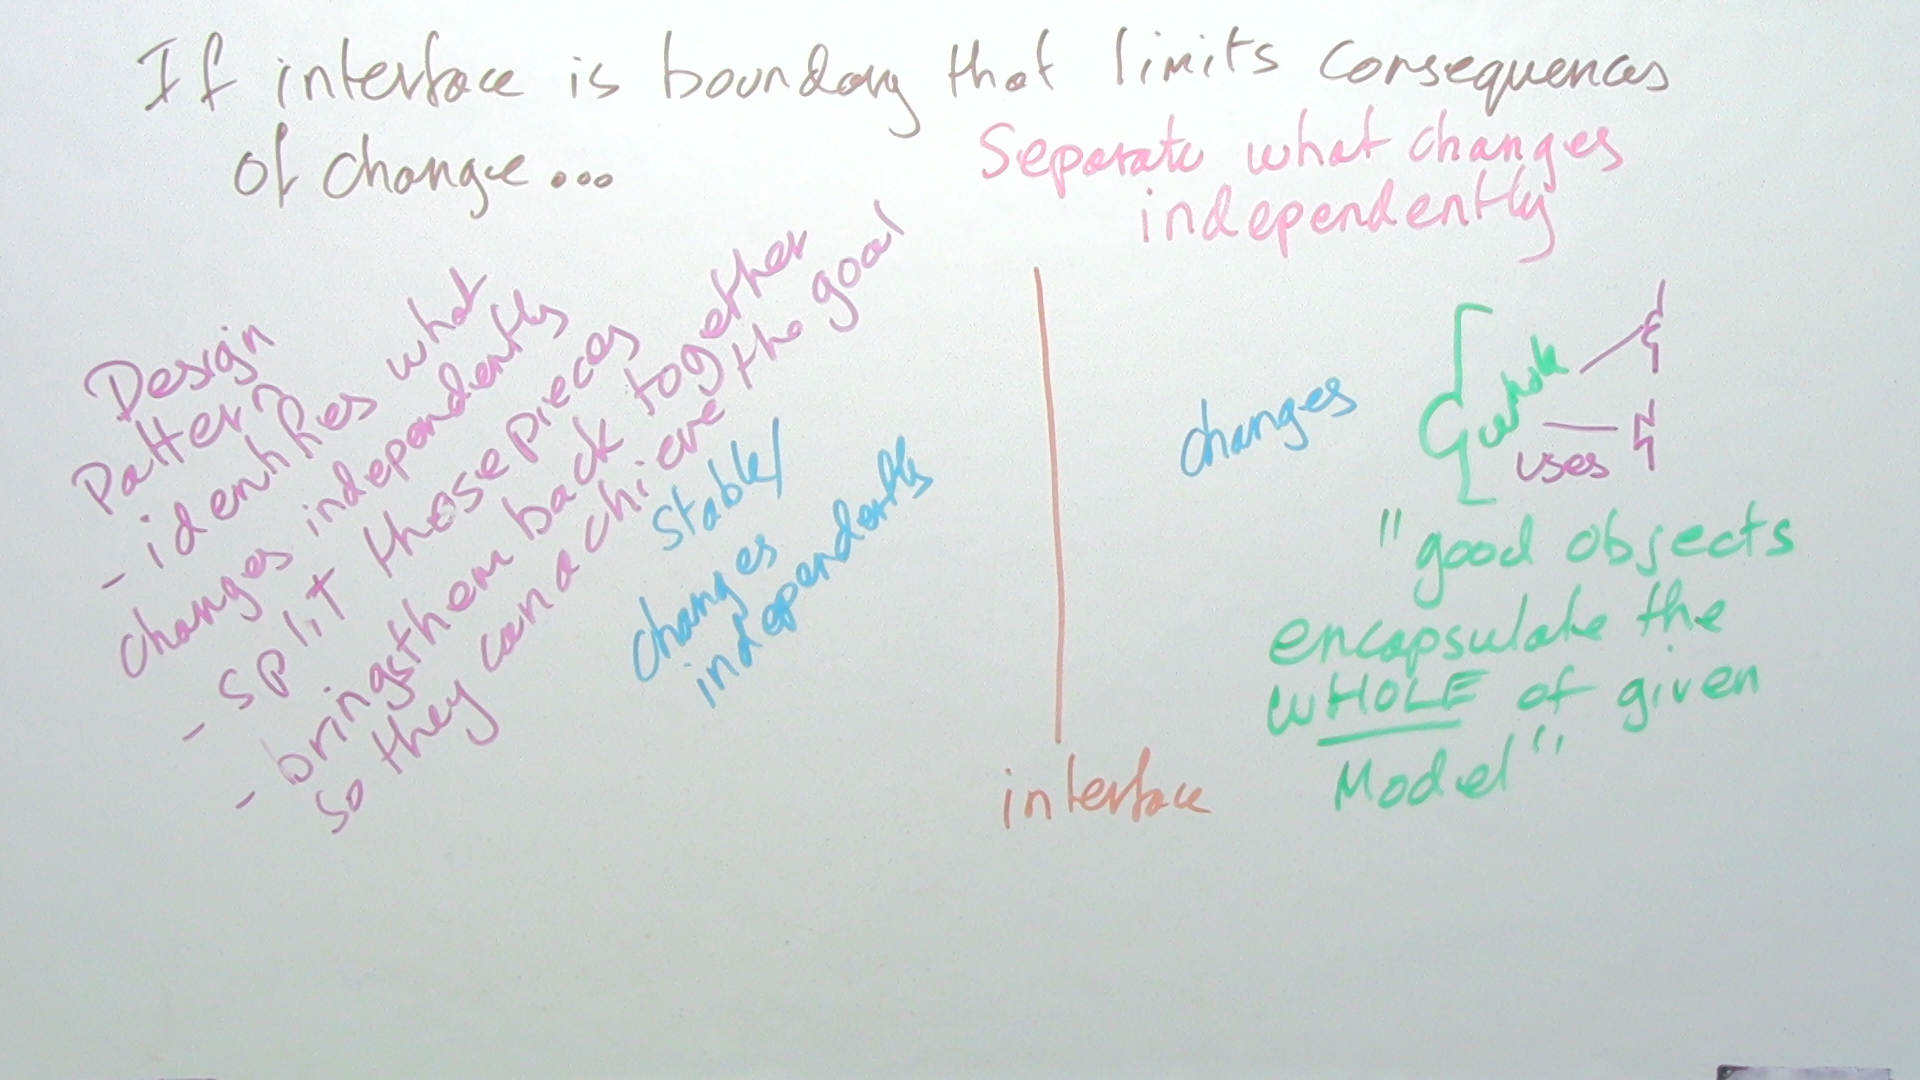 If interface is boundary that limits consequences
of change...
Separate what changes
independently
Design
Pattern
- identifies what
changes independently
- split those pieces
- brings them back together
so they can achieve the goal
stable/
changes
independently
changes
whole
uses
"good objects
encapsulate the
WHOLE of given
Model"
interface